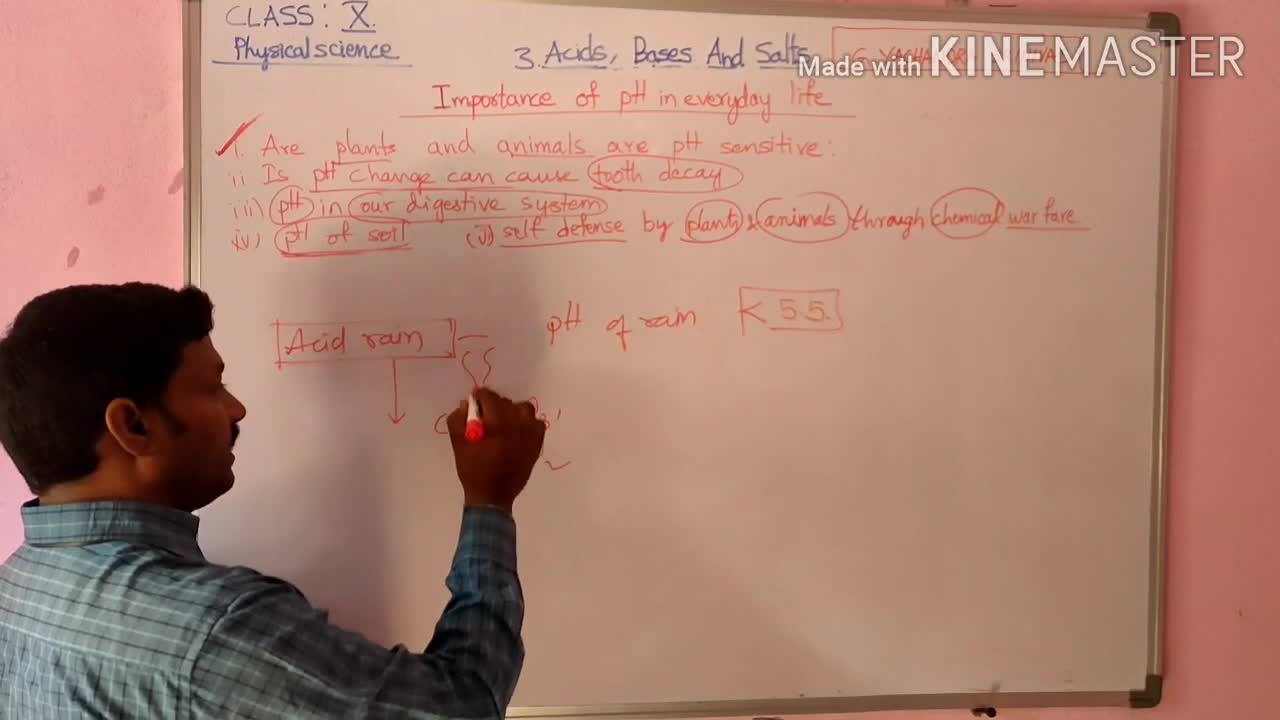 CLASS: X.
Physical science
3. Acids, Bases And Salts
Made with KINEMASTER
Importance of pH in everyday life
i. Are plants and animals are pH sensitive:
ii Is pH change can cause tooth decay
iii) pH in our digestive system
iv) pH of soil (v) self defense by plants & animals through chemical war fare
Acid rain
pH of rain < 5.5.